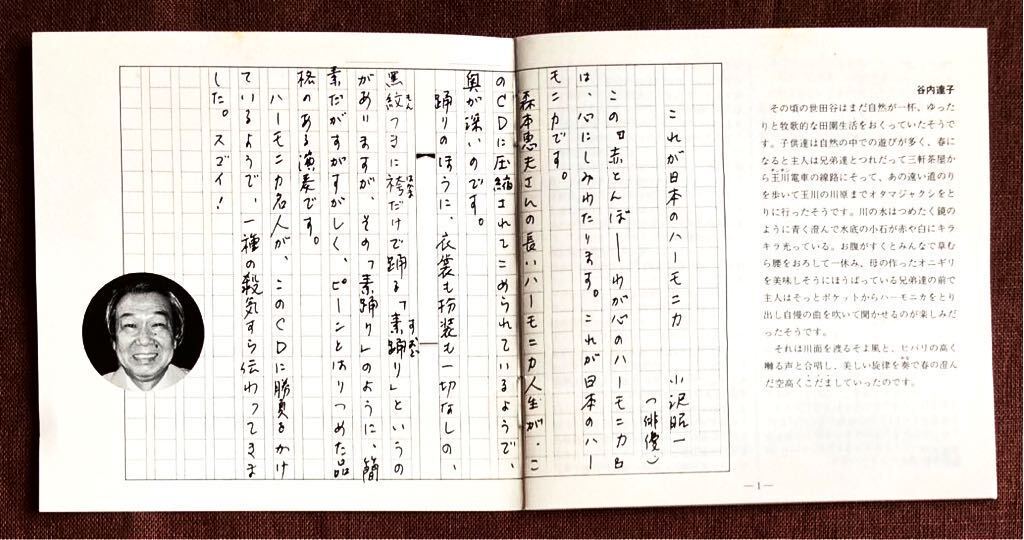 これが日本のハーモニカ　小沢昭一
（俳優）
この「赤とんぼ――わが心のハーモニカ」
は、心にしみわたります。これが日本のハー
モニカです。
森本恵夫さんの長いハーモニカ人生が、こ
のCDに圧縮されてこめられているようで、
奥が深いのです。
踊りのほうに、衣裳も扮装も一切なしの、
黒紋つきに袴だけで踊る「素踊り」というの
がありますが、その「素踊り」のように、簡
素だがすがすがしく、ピーンとはりつめた品
格のある演奏です。
ハーモニカ名人が、このCDに勝負をかけ
ているようで、一種の殺気すら伝わってきま
した。スゴイ！
谷内達子
その頃の世田谷はまだ自然が一杯、ゆった
りと牧歌的な田園生活をおくっていたそうで
す。子供達は自然の中での遊びが多く、春に
なると主人は兄弟達とつれだって三軒茶屋か
ら玉川電車の線路にそって、あの遠い道のり
を歩いて玉川の川原までオタマジャクシをと
りに行ったそうです。川の水はつめたく鏡の
ように青く澄んで水底の小石が赤や白にキラ
キラ光っている。お腹がすくとみんなで草む
ら腰をおろして一休み、母の作ったオニギリ
を美味しそうにほうばっている兄弟達の前で
主人はそっとポケットからハーモニカをとり
出し自慢の曲を吹いて聞かせるのが楽しみだ
ったそうです。
それは川面を渡るそよ風と、ヒバリの高く
囀る声と合唱し、美しい旋律を奏で春の澄ん
だ空高くこだましていったのです。
―1―